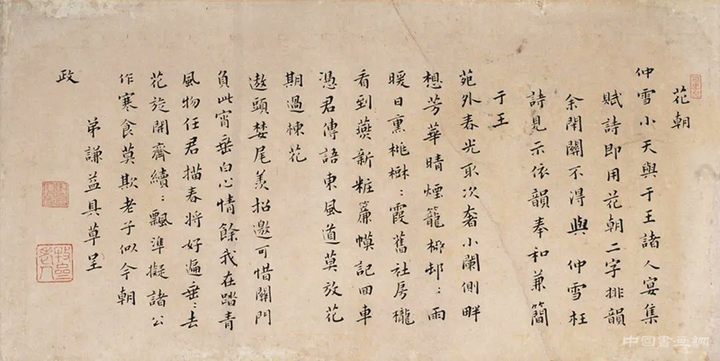 花朝
仲雪小天與于王諸人宴集
賦詩即用花朝二字排韻
余閉關不得與 仲雪枉
詩見示依韻奉和兼簡
于王
苑外春光取次奢小闌側畔
想芳華晴煙籠柳邨:雨
暖日熏桃樹:霞舊社房櫳
看到燕新粧簾幙記回車
憑君傳語東風道莫放花
期過楝花
遨頭婪尾羨招邀可惜關門
負此宵垂白心情餘我在踏青
風物任君描春將好遍垂:去
花旋開齊續:飄準擬諸公
作寒食莫欺老子似今朝
弟謙益具草呈
政